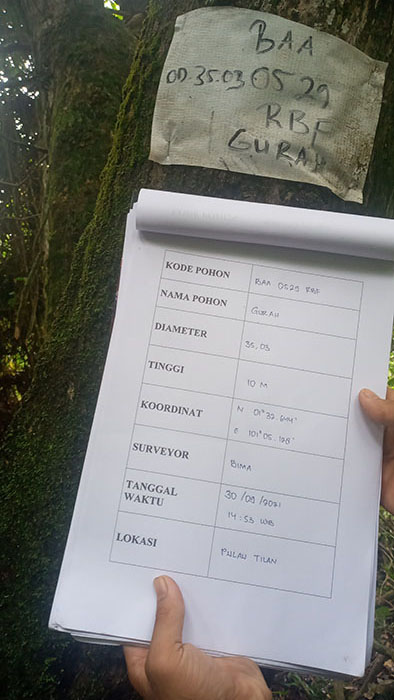 BAA
OD 35.03 05 29
RBF
GURAH
KODE POHON BAA 0529 RBF
NAMA POHON GURAH
DIAMETER 35,03
TINGGI 10 M
KOORDINAT N 01° 32. 644'
E 101° 05. 178'
SURVEYOR BIMA
TANGGAL 30/09/2021
WAKTU 14:53 WIB
LOKASI PULAU TILAN